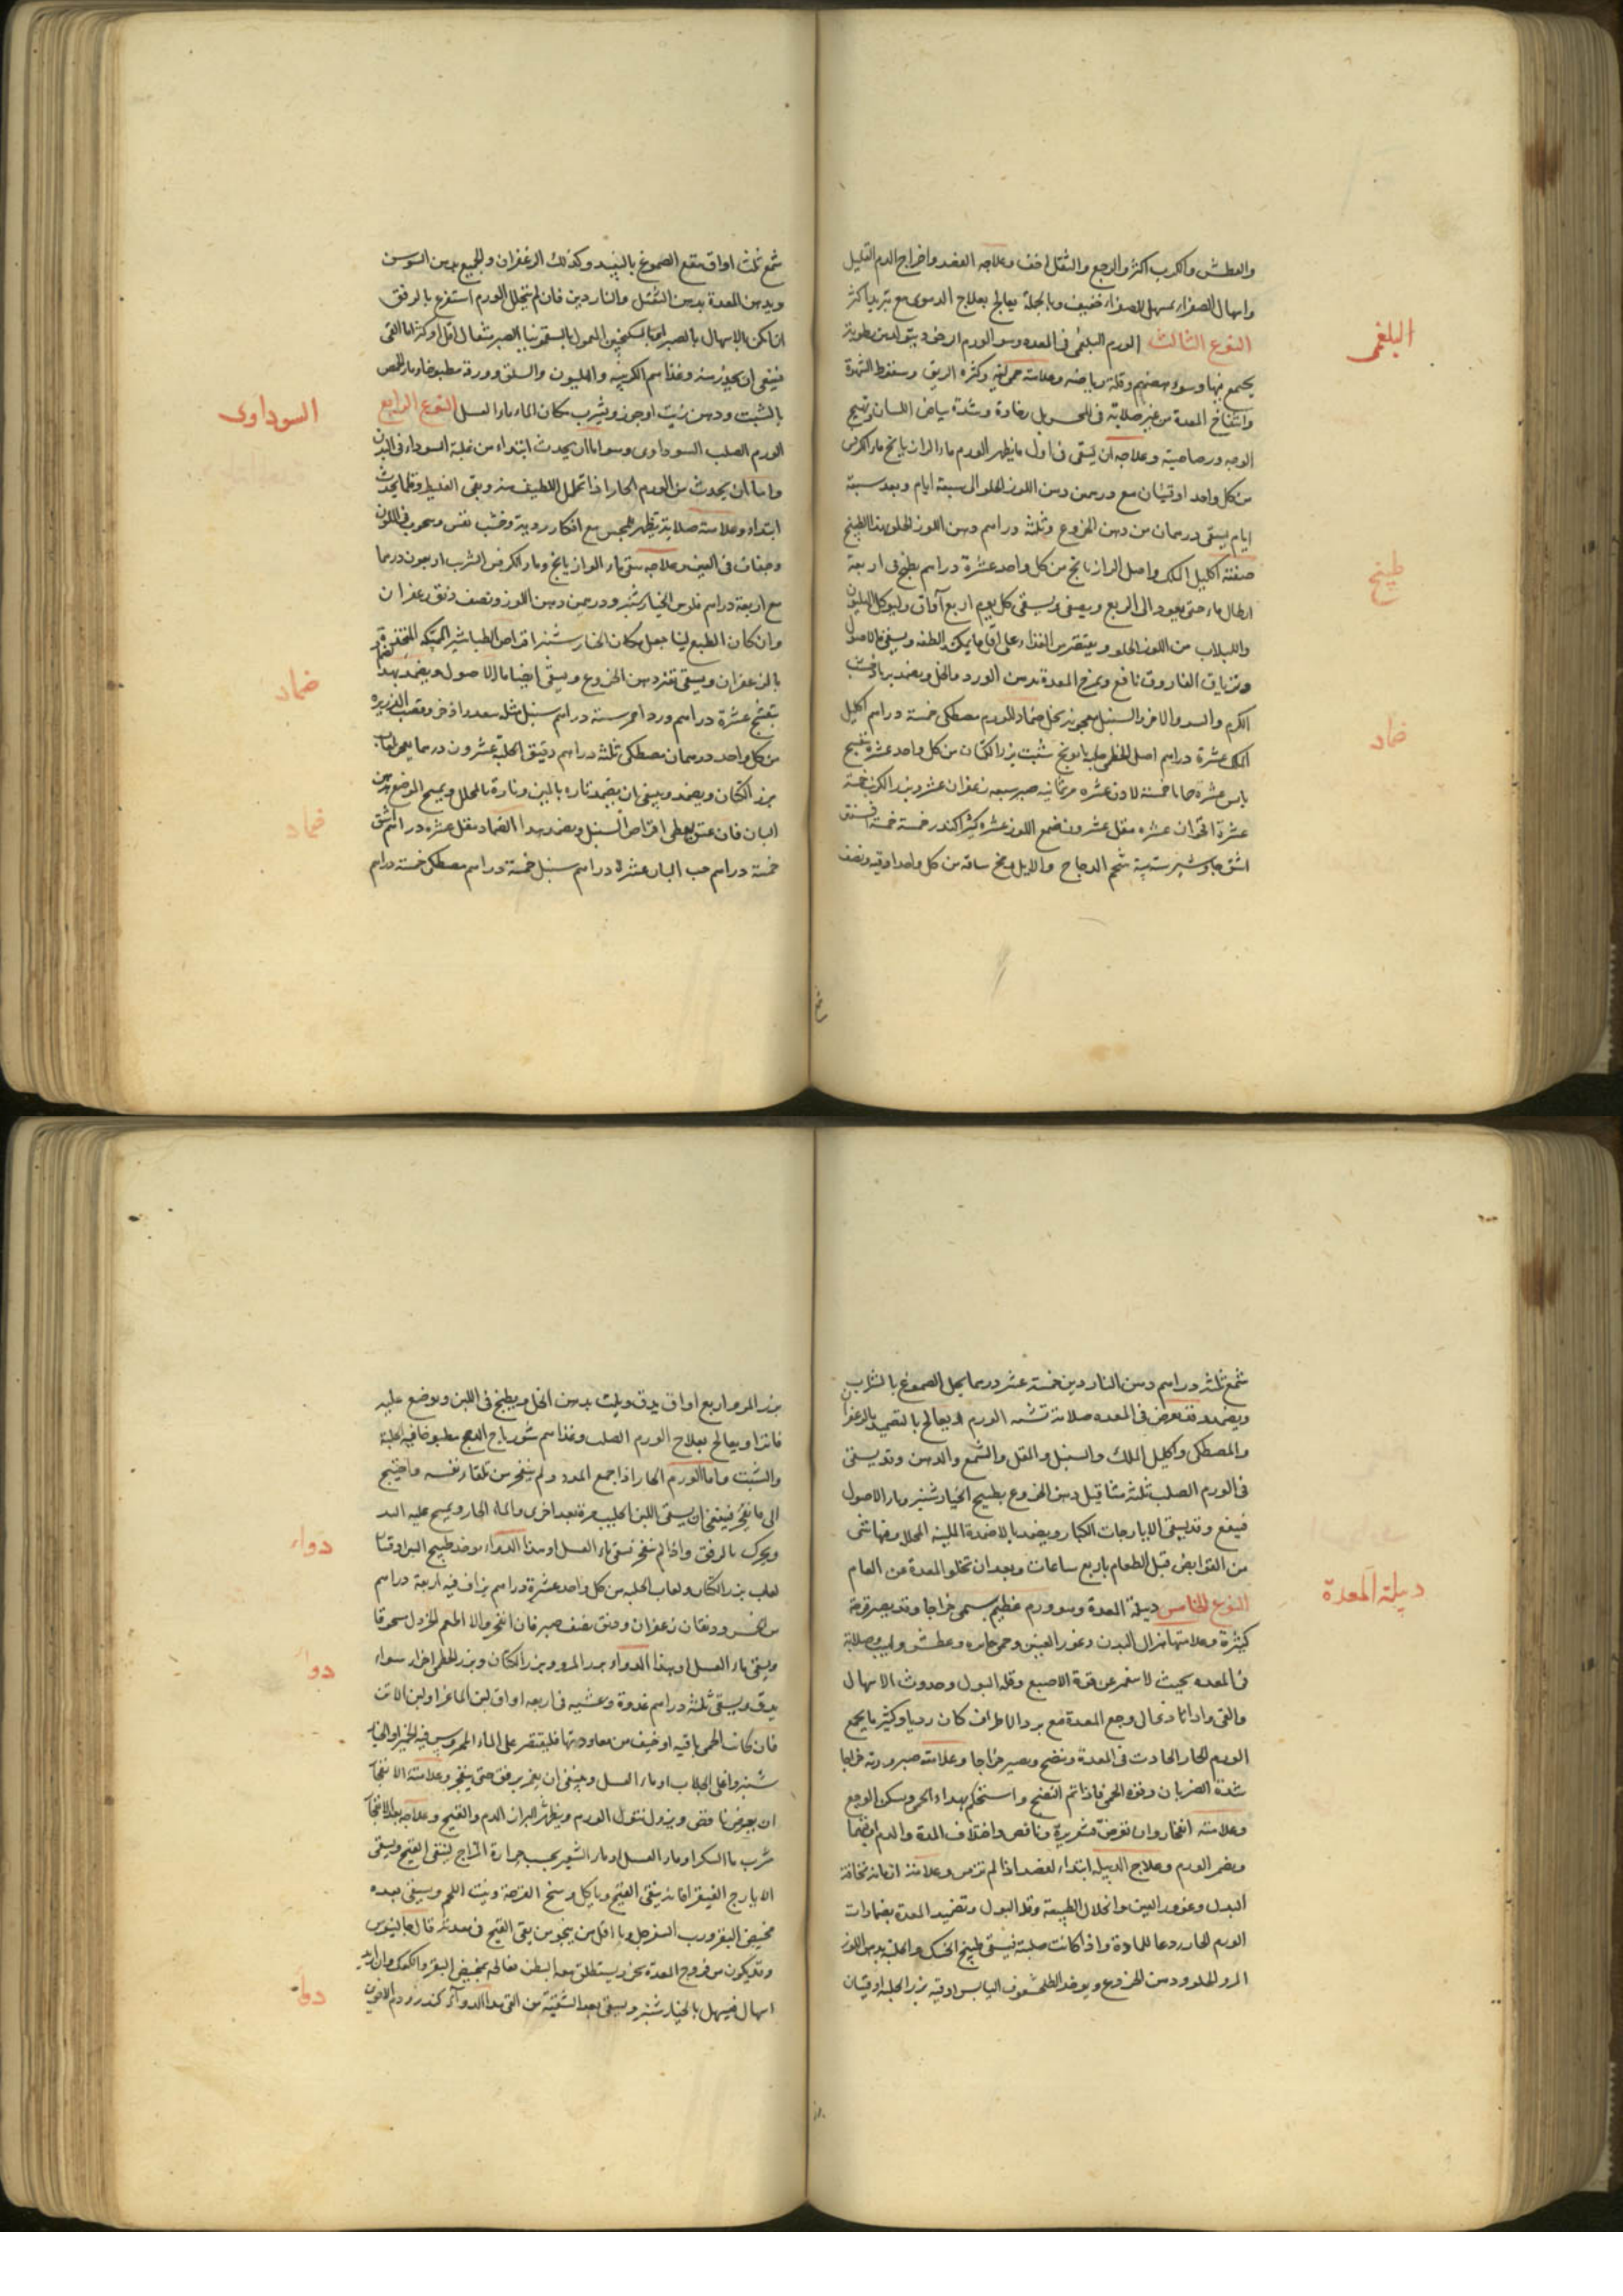 والعطش والكرب اكثر والوجع والثقل اخف وعلاجه الفصد واخراج الدم القليل
واسهال الصفراء بمسهل للصفراء خفيف وبالجملة يعالج بعلاج الدموى مع تبريد اكثر
البلغمى
النوع الثالث الورم البلغمى فى المعده وهو الورم الرخو ويتولد من رطوبة
يجتمع فيها وسوء هضم وقلة رياضه وعلامته حمى لينة وكثرة الريق وسقوط الشهوة
وانتفاخ المعدة من غير صلابة فى رخاوة وشدة بياض اللسان وتهيج
الوجه ورصاصيته وعلاجه ان يسقى فى اول ما يظهر الورم ماء الرازيانج ماء الكرفس
من كل واحد اوقيتان مع درهمين دهن اللوز الحلو الى سبعة ايام وبعد سبعة
ايام يسقى درهمان من دهن الخروع وثلثة دراهم دهن اللوز الحلو بهذا الطبيخ
طبيخ
صفته اكليل الملك واصل الرازيانج من كل واحد عشرة دراهم يطبخ فى اربعة
ارطال ماء حتى يعود الى الربع ويصفى ويسقى كل يوم اربع آواق وليوكل الهليون
واللبلاب من اللوز الحلو ويقتصر من الغذاء على اقل ما يمكن والطفه ويسقى ماء الاصول
وترياق الفاروق نافع ويمرخ المعدة بدهن الورد والخل ويضمد برماد خشب
الكرم والسعد والاذخر والسنبل معجونة بخل
ضماد
ضماد للورم مصطكى خمسة دراهم اكليل
الملك عشرة دراهم اصل الخطمى حلبه بابونج شبت بزر الكتان من كل واحد عشرة بنفسج
يابس عشرة حماما خمسة لادن عشره مر ثمانيه صبر سبعه زعفران عشر وبزر الكرنب خمسة
عشرة اقحوان عشره مقل عشرون صمغ اللوز عشره كثيرا كندر خمسة خمسة
اشق جاوشير ستة ستة شحم الدجاج والايل ومخ ساقه من كل واحد اوقيه ونصف
شمع ثلث اواق ينقع الصموغ بالنبيذ وكذلك الزعفران والجميع بدهن السوسن
ويدهن المعدة بدهن والناردين فان لم يتحلل الورم استفرغ بالرفق
ان امكن بالاسهال بالصبر او بالسكنجبين المعمول بالسقمونيا الصبر مثقال اقل او اكثر اما القى
فينبغى ان يحذر منه وغذاهم الكرنبيه والهليون والسلق وورقه مطبوخا وماء الحمص
بالشبت ودهن زيت او جوز ويشرب مكان الماء ماء العسل النوع الرابع
السوداوى
الورم الصلب السوداوى وهو اما ان يحدث ابتداء من غلبة السوداء فى البدن
واما ان يحدث من الورم الحار اذا تحلل اللطيف منه وبقى الغليظ وقلما يحدث
ابتداء وعلامته صلابة تظهر للمجس مع افكار رديية وخبث نفس وشحوب فى اللون
وجفاف فى العين وعلاجه سقى ماء الرازيانج وماء الكرفس الشرب اربعون درهما
مع اربعة دراهم فلوس الخيارشنبر ودرهمين دهن اللوز ونصف دنق زعفران
وان كان الطبع لينا جعل مكان الخيارشنبر اقراص الطباشير الممسكه المتخذة
بالزعفران ويسقى بقدر دهن الخروع ويسقى ايضا ماء الاصول ويضمد بهذا الضماد
ضماد
بنفسج عشرة دراهم ورد احمر ستة دراهم سنبل مثله سعد واذخر وقصب الذريره
من كل واحد درهمان مصطكى ثلثة دراهم دقيق الحلبة عشرون درهما يعجن بلعاب
بزر الكتان ويضمد وينبغى ان يضمد تاره بالملين وتارة بالمحلل ويمسح الموضع بدهن
ضماد
البان فان عتق يعطى اقراص السنبل ويضمد بهذا الضماد مقل عشره دراهم اشق
خمسة دراهم حب البان عشرة دراهم سنبل خمسة دراهم مصطكى خمسة دراهم
شمع ثلثة دراهم دهن الناردين خمسة عشر درهما يحل الصموغ بالشراب
ويضمد وقد يعرض فى المعده صلابة تشبه الورم ويعالج بالتضميد بالزعفران
والمصطكى واكليل الملك والسنبل والمقل والشمع والدهن وقد يسقى
فى الورم الصلب ثلثة مثاقيل دهن الخروع بطبيخ الخيارشنبر وماء الاصول
فينفع وقد يسقى الايارجات الكبار ويضمد بالاضمدة الملينة المحللة
من القوابض قبل الطعام باربع ساعات وبعد ان تخلو المعدة من الطعام
دبيلة المعدة
النوع الخامس دبيلة المعدة وهو ورم عظيم يسمى خراجا وقد يصير قرحة
كثيرة وعلامتها هزال البدن وغور العينين وحمى حاره وعطش ولهيب وصلابة
فى المعده بحيث لا تنغمر عن قوة الاصبع وقلة البول وحدوث الاسهال
والقى واذا تمادى الحال وجع المعدة مع برد الاطراف كان رديا وكثيرا ما يجمع
الورم الحار الحادث فى المعدة وينضج ويصير خراجا وعلامته صيرورته خراجا
شدة الضربان وقوة الحمى فاذا تم النضج واستحكم يهداء الحمى ويسكن الوجع
وعلامته انفجاره ان تعرض قشعريرة ونافض واختلاف المدة والدم ايضا
ويضمر الورم وعلاج الدبيلة ابتداء لفصد اذا لم تزمن وعلامة ازمانه نحافة
البدن وغور العين وانحلال الطبيعة وقلة البول وتضميد المعدة بضمادات
الورم الحار ردعا للمادة واذا كانت صلبة فيسقى طبيخ الحسك والحلبة بدهن اللوز
المر والحلو ودهن الخروع ويوخذ اليابس اوقية بزر الحلبة اوقيتان
بزر المرو اربع اواق يدق ويلت بدهن الخل ويطبخ فى اللبن ويوضع عليه
فاترا ويعالج بعلاج الورم الصلب وغذاهم شورباج الدجج مطبوخا فيه الحلبة
والشبت واما الورم الحار اذا جمع المدة ولم ينفجر من تلقاء نفسه واحتيج
الى ما يفجر فينبغى ان يسقى اللبن الحليب مرة بعد اخرى والماء الحار ويمسح عليه اليد
دواء
ويحرك بالرفق واذا لم ينفجر تسقى ماء العسل او بهذا الدواء يوخذ طبيخ التين اوقيتان
لعاب بزر الكتان ولعاب الحلبه من كل واحد عشرة دراهم يزاف فيه اربعة دراهم
ودنقان زعفران ودنق نصف صبر فان انفجر والا اطعم الخردل مسحوقا
دواء
ويسقى ماء العسل او بهذا الدواء بزر المرو وبزر الكتان وبزر الخطمى اجزاء سواء
يدق ويسقى ثلثة دراهم غدوة وعشيه فى اربعه اواق لبن الماعز او لبن الاتن
فان كانت الحمى باقيه او خيف من معاودتها فليقتصر على الماء الممروس فيه الخيار
شنبر وامتلى الجلاب او ماء العسل وينبغى ان يغمز برفق حتى ينفجر وعلامته الانفجار
ان يعرض نافض ويزول نتوء الورم ويظهر فى البراز الدم والقيح وعلاجه بعد الانفجار
شرب ماء السكر او ماء العسل او ماء الشعير بحسب حرارة المزاج لينقى القيح ويسقى
الايارج الفيقرا فانه ينقى القيح وياكل وسخ القرحة وينبت اللحم ويسقى بعده
مخيض البقر ورب السفرجل وما اقل من ينجو من بقى القيح فى معدته قال جالينوس
وقد يكون من قروح المعدة يستطلق معه البطن فعالجه بمخيض البقر والكعك وان اريد
دواء
اسهال فيسهل بالخيار شنبر ويسقى بعد التنقية من القيح هذا الدواء كندر ودم الاخوين